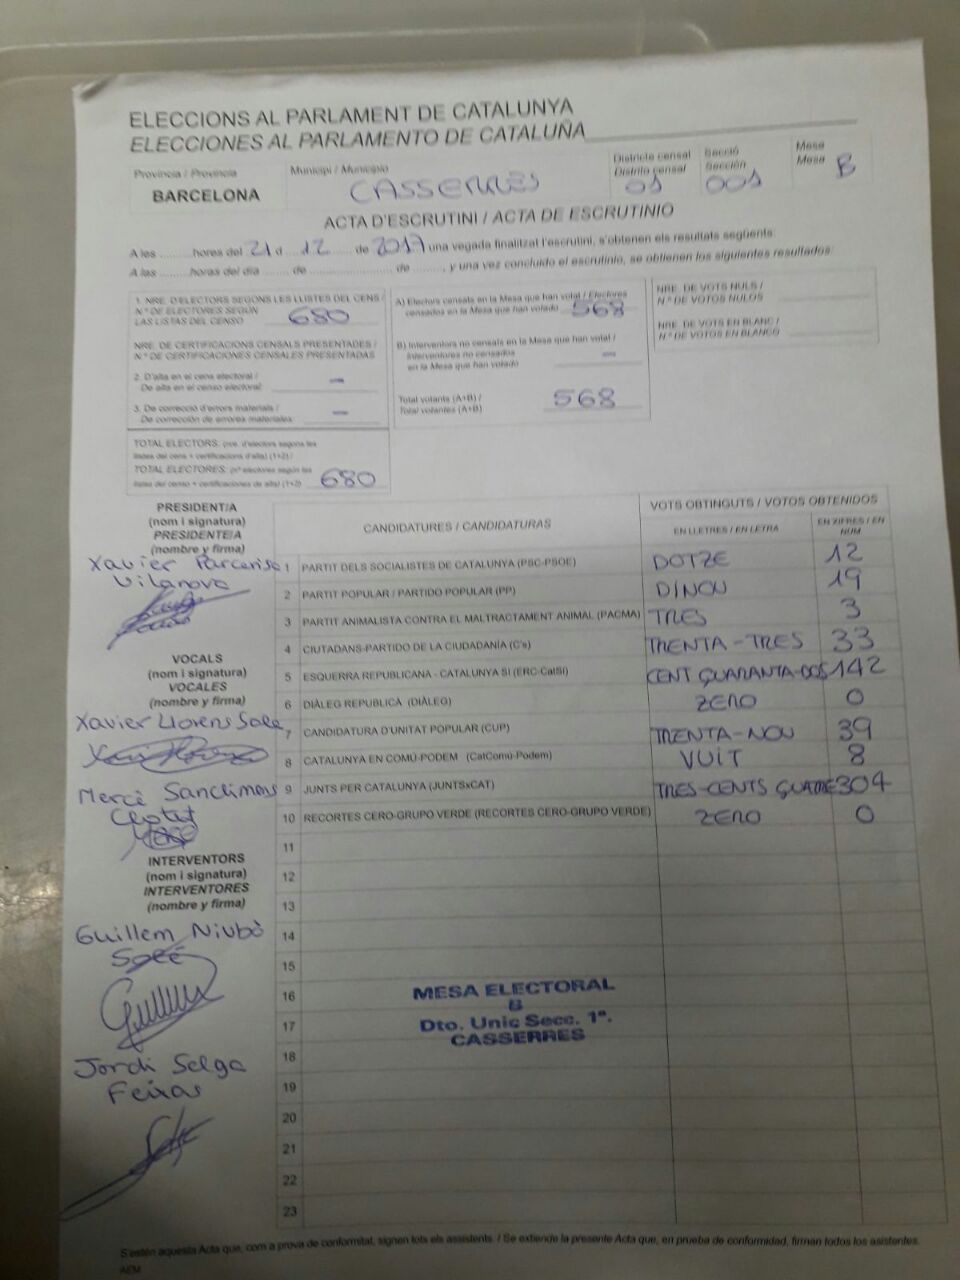 ELECCIONS AL PARLAMENT DE CATALUNYA
ELECCIONES AL PARLAMENTO DE CATALUÑA
Província / Provincia
BARCELONA
Municipi / Municipio
CASSERRES
Districte censal
Distrito censal
01
Secció
Sección
001
Mesa
Mesa
B
ACTA D'ESCRUTINI / ACTA DE ESCRUTINIO
A les ......... hores del 21 d ... 12 ... de 2017 una vegada finalitzat l'escrutini, s'obtenen els resultats següents:
A las ......... horas del día ...... de ........................ de ........, y una vez concluido el escrutinio, se obtienen los siguientes resultados:
1. NRE. D'ELECTORS SEGONS LES LLISTES DEL CENS /
N.º DE ELECTORES SEGÚN
LAS LISTAS DEL CENSO
680
NRE. DE CERTIFICACIONS CENSALS PRESENTADES /
N.º DE CERTIFICACIONES CENSALES PRESENTADAS
2. D'alta en el cens electoral /
De alta en el censo electoral: –
3. De correcció d'errors materials /
De corrección de errores materiales: –
TOTAL ELECTORS: (nre. d'electors segons les
llistes del cens + certificacions d'alta) (1+2) /
TOTAL ELECTORES: (nº electores según las
listas del censo + certificaciones de alta) (1+2) 680
A) Electors censats en la Mesa que han votat / Electores
censados en la Mesa que han votado 568
B) Interventors no censats en la Mesa que han votat /
Interventores no censados
en la Mesa que han votado –
Total votants (A+B) /
Total votantes (A+B) 568
NRE. DE VOTS NULS /
N.º DE VOTOS NULOS
NRE. DE VOTS EN BLANC /
N.º DE VOTOS EN BLANCO
PRESIDENT/A
(nom i signatura)
PRESIDENTE/A
(nombre y firma)
Xavier Parcerisa
Vilanova
VOCALS
(nom i signatura)
VOCALES
(nombre y firma)
Xavier Llorens Solé
Mercè Sanclimens
INTERVENTORS
(nom i signatura)
INTERVENTORES
(nombre y firma)
Guillem Niubò
Solé
Jordi Selga
Feixas
CANDIDATURES / CANDIDATURAS
VOTS OBTINGUTS / VOTOS OBTENIDOS
EN LLETRES / EN LETRA
EN XIFRES / EN NÚM
1 PARTIT DELS SOCIALISTES DE CATALUNYA (PSC-PSOE) DOTZE 12
2 PARTIT POPULAR / PARTIDO POPULAR (PP) DINOU 19
3 PARTIT ANIMALISTA CONTRA EL MALTRACTAMENT ANIMAL (PACMA) TRES 3
4 CIUTADANS-PARTIDO DE LA CIUDADANÍA (C's) TRENTA-TRES 33
5 ESQUERRA REPUBLICANA - CATALUNYA SÍ (ERC-CatSí) CENT QUARANTA-DOS 142
6 DIÀLEG REPUBLICÀ (DIÀLEG) ZERO 0
7 CANDIDATURA D'UNITAT POPULAR (CUP) TRENTA-NOU 39
8 CATALUNYA EN COMÚ-PODEM (CatComú-Podem) VUIT 8
9 JUNTS PER CATALUNYA (JUNTSxCAT) TRES-CENTS QUATRE 304
10 RECORTES CERO-GRUPO VERDE (RECORTES CERO-GRUPO VERDE) ZERO 0
11
12
13
14
15
16
17
18
19
20
21
22
23
MESA ELECTORAL
B
Dto. Unic Secc. 1ª.
CASSERRES
S'estén aquesta Acta que, com a prova de conformitat, signen tots els assistents. / Se extiende la presente Acta que, en prueba de conformidad, firman todos los asistentes.